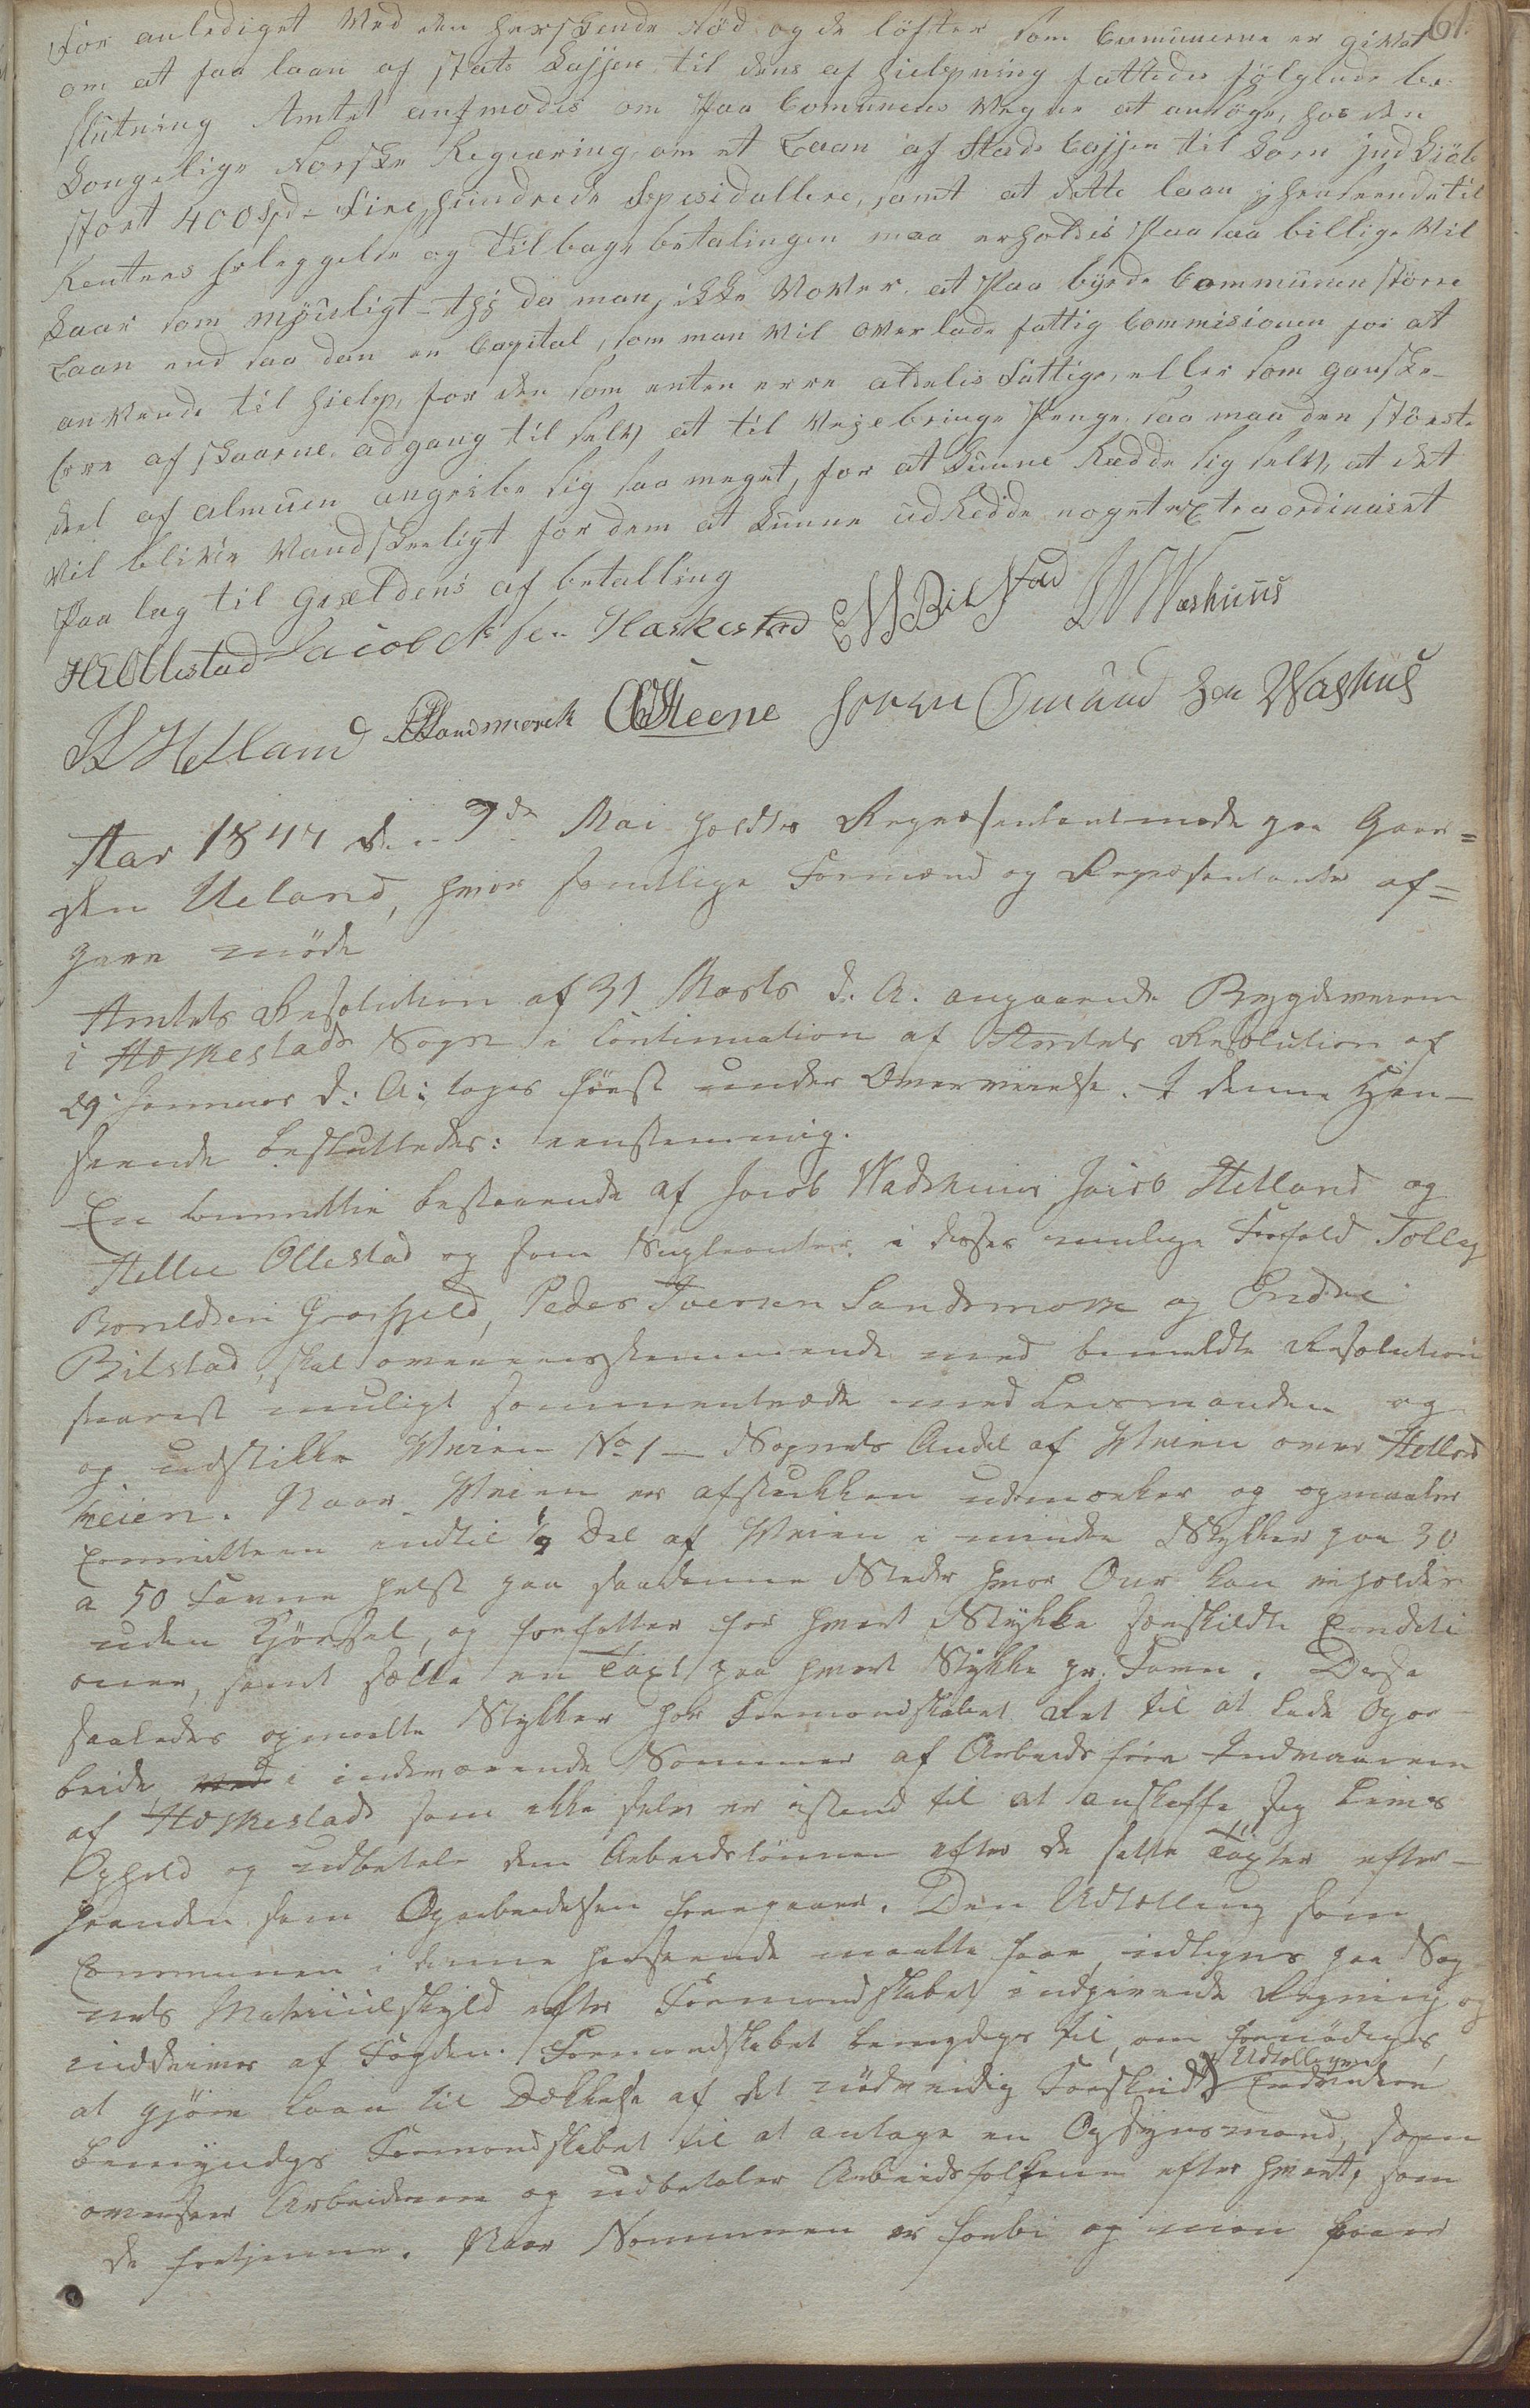 61.
for anlediget Ved den herskende Nød og de løfter som Comunerne er givet
om at faa laan af stats Cassen til dens af hielpning fattedes følglende be-
slutning Amtet anmodes om paa Comunens Vegne at ansøge, hos den
Kongelige Norske Regiæring om et Laan af Stads Cassen til Korn indkiøb
stort 400 Spd - fire hundrede Spesidallere, samt at dette laan i henseende til
Rentens erleggelse og tilbage betalingen maa erholdes paa saa billige Vil
kaar som myeligt - thi da man ikke Vover at paa byrde Communen større
Laan end saa dan en Capital, som man vil overlade fattig Commisionen for at
anvende til hielp, for den som enten erre aldelis fattige, eller som ganske-
Erre af skaarne adgang til selv at til Vejebringe Penge saa maa den største
deel af almuen angribe sig saa meget, for at kunne Redde sig selv, at det
vil blive Vandskeligt for dem at kunne udredde noget extraordinairt
paa lag til Gieldens af betalling
HEOllestad Jacob Hæskestad EMBilstad JWWashuus
JLHelland PSandsmork OOSkeene Søren Omund søn Washus
Aar 1847 d. 7de Mai holdtes Repræsentantmøde paa Gaar=
den Ueland, hvor samtlige Formænd og Repræsentanter af=
gave møde
Amtets Resolution af 31 Marts d. A. angaaende Bygdeveiene
i Hæskestads Sogn i Continuation af Amtets Resolution af
29 Januar d: A: toges først under Overveielse. I denne Hen-
seende besluttedes: eenstemmig.
En Committee bestaaende af Jacob Wadshuus Jacob Helland og
Helle Ollestad og som Supleanter i disses mulige Forfald Tollag
Boruldsen Grasfjeld, Peder Iversen Sandsmork og Endre
Bilstad, skal overeensstemmende med bemeldte Resolution
snarest muligt sammentræde med Lensmanden og
og udstikke Veien No 1 - Sognets Andel af Veien over Helland
heien. Naar Veien er afstukken udmærker og opmaaler
Committeen indtil ½ Del af Veien i mindre Stykker paa 30
a 50 Favne helst paa saadanne Steder hvor Our kan erholdes
uden Kjørsel, og forfatter for hvert Stykke særskildte Conditi
oner, samt sætte en Taxt paa hvert Stykke pr. Favn. Disse
saaledes opmaalte Stykker har Formandskabet Ret til at lade Opar
beide i indeværende Sommer af Arbeidsføre Indvaanere
af Hæskestad som ikke selv er istand til at anskaffe sig Livs
Ophold og udbetale dem Arbeidslønnen efter de satte Taxter efter-
haanden som Oparbeidelsen foregaaer. Den Udtælling som
Communen i denne henseende maatte have, udlignes paa Sog
nets Matriculskyld efter Formandskabets indgivende Regning og
inddrives af Fogden. Formandskabet bemyndiges til, om fornødiges
at gjøre Laan til Dækkelse af det nødvendig Forskud Udtællingen Endvidere
bemyndiges Formandskabet til at antage en Opsynsmand, som
overseer Arbeiderne og udbetaler Arbeidsfolkene efter hvert, som
de fortjenne. Naar Sommeren er forbi og man haver